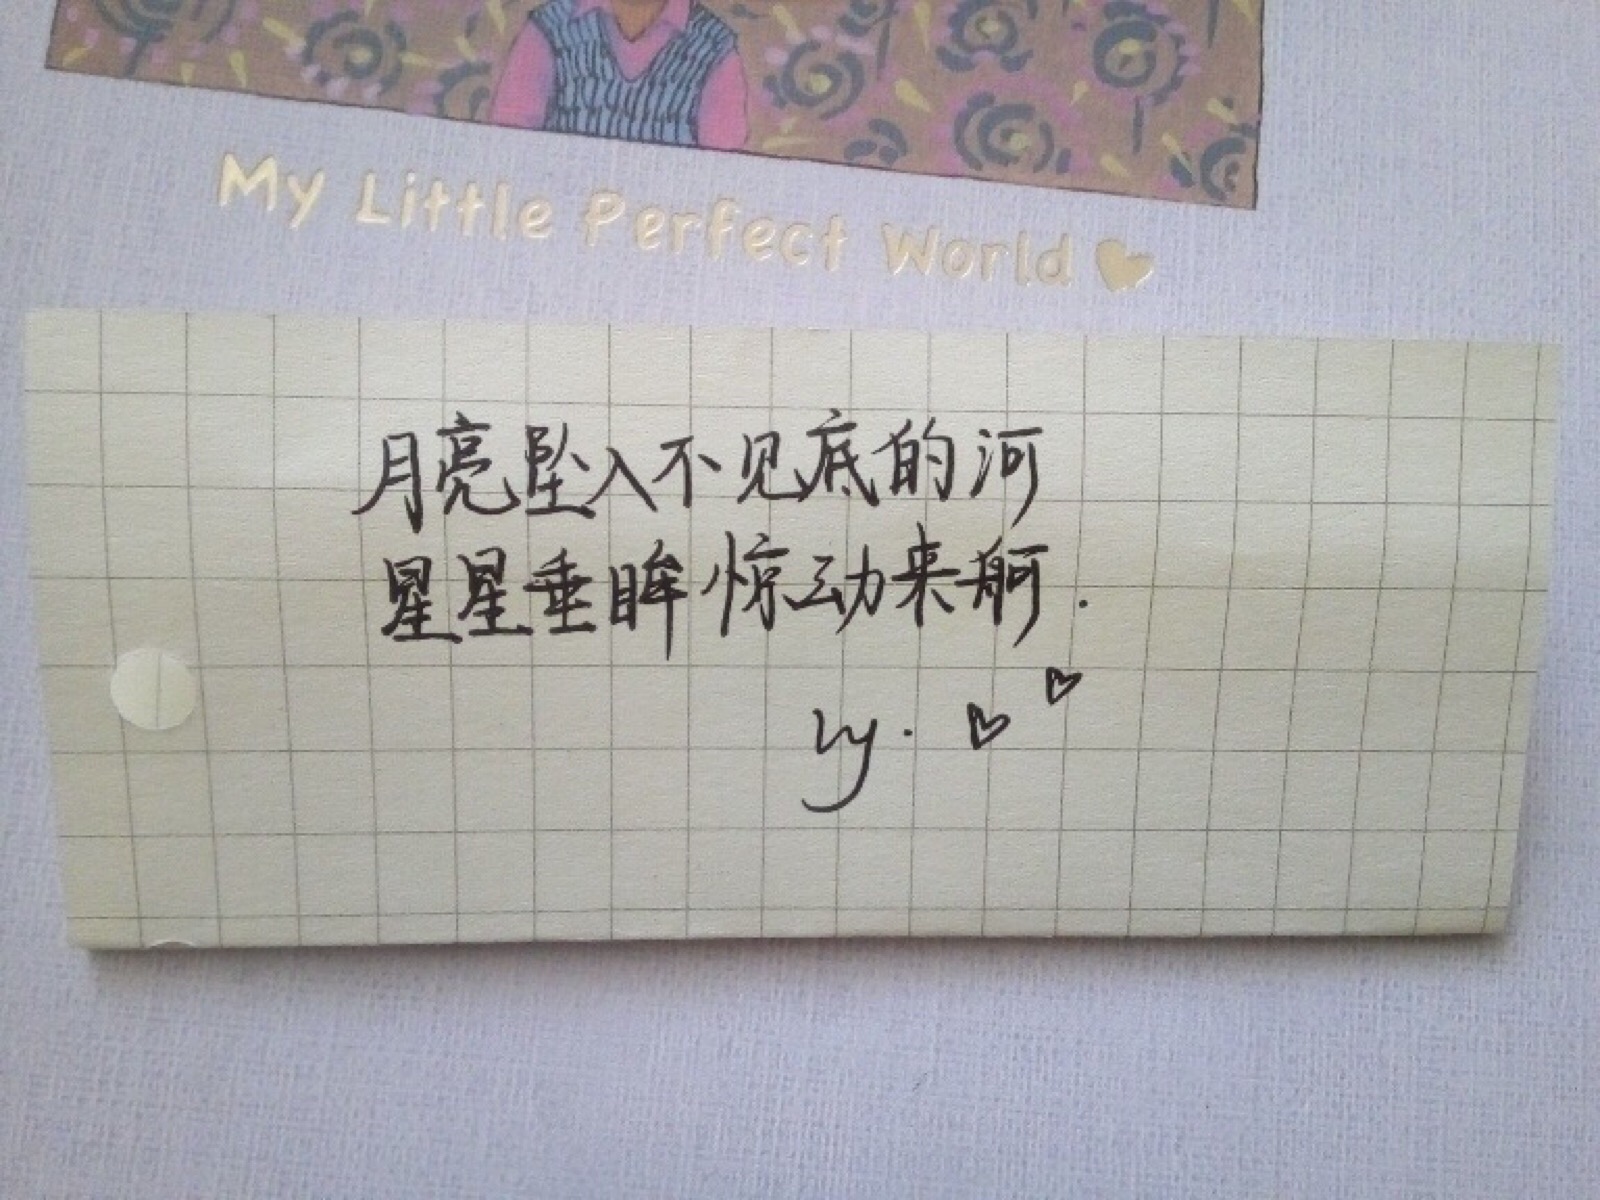 My Little Perfect World
月亮坠入不见底的河
星星垂眸惊动来舸.
ly.